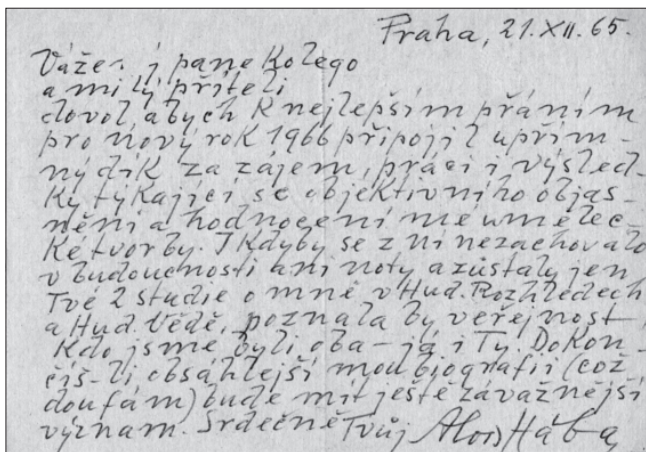 Praha, 21.XII.65.
Vážený pane kolego
a milý příteli
dovol, abych k nejlepším přáním
pro nový rok 1966 připojil upřím-
ný dík za zájem, práci i výsled-
ky týkající se objektivního objas-
nění a hodnocení mé umělec-
ké tvorby. I kdyby se z ní nezachovalo
v budoucnosti ani noty a zůstaly jen
Tvé 2 studie o mně v Hud. Rozhledech
a Hud. Vědě, poznala by veřejnost,
kdo jsme byli oba - já i Ty. Dokon-
číš-li obsáhlejší mou biografii (což
doufám) bude mít ještě závažnější
význam. Srdečně Tvůj Alois Hába,